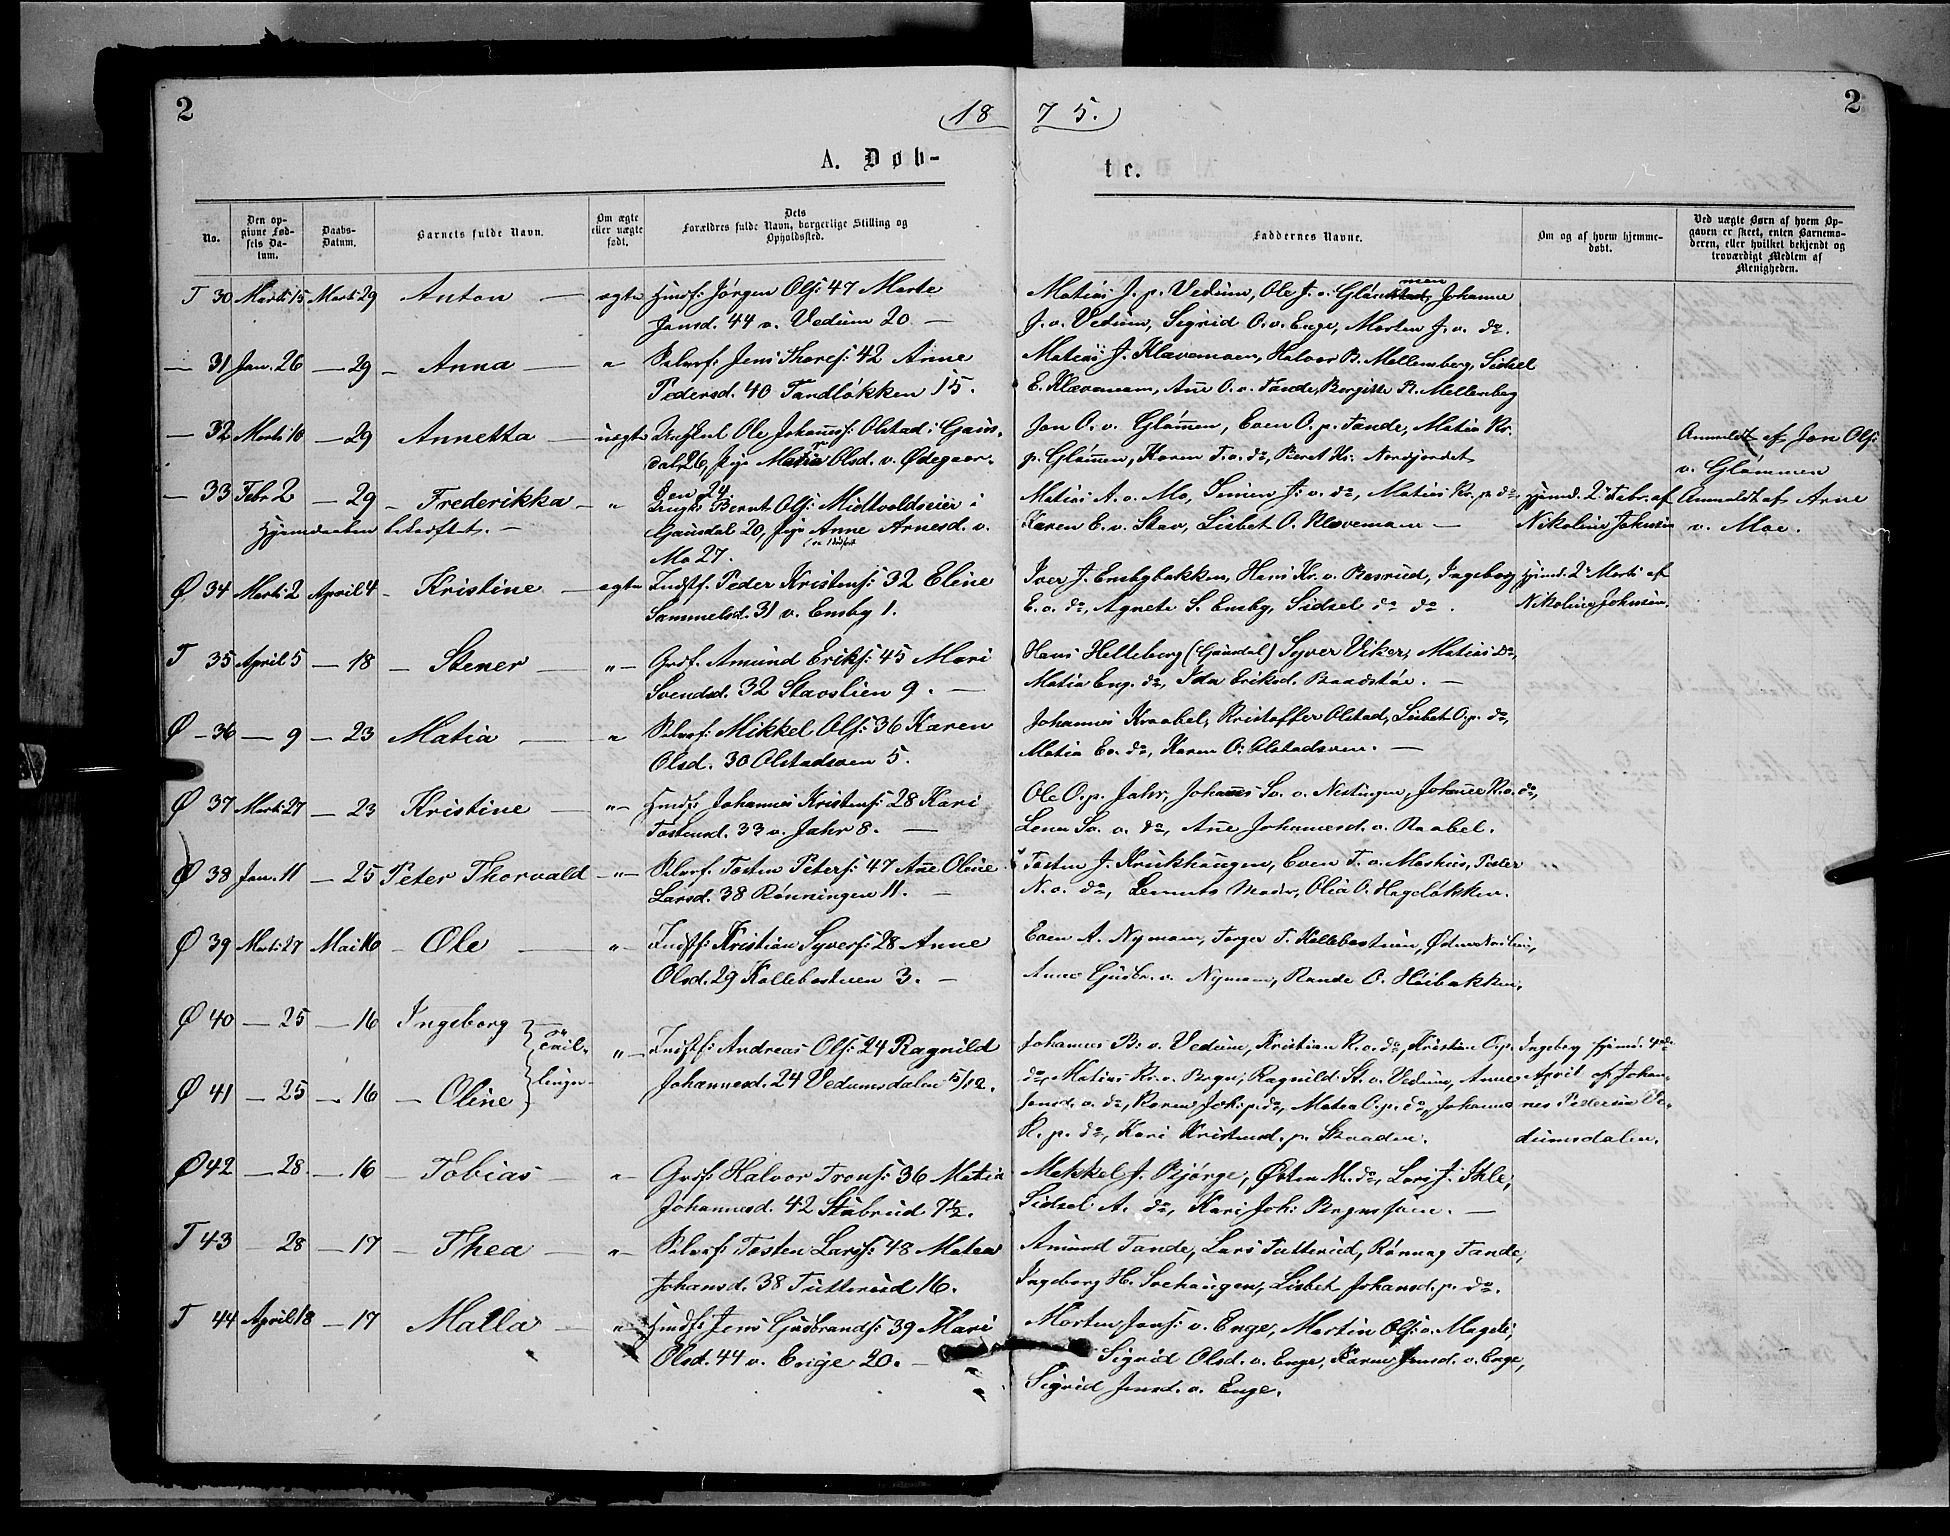 2
18 75.
2
A. Døb-
te.
No.
Den op-
givne Fød-
sels Da-
tum.
Daabs-
Datum.
Barnets fulde Navn.
Om ægte
eller uægte
født.
Dets
Forældres fulde Navn, borgerlige Stilling og
Opholdssted.
Faddernes Navne.
Om og af hvem hjemme-
døbt.
Ved uægte Børn af hvem Op-
gaven er skeet, enten Barnemo-
deren, eller hvilket bekjendt og
troværdigt Medlem af
Menigheden.
T 30 Marts 15 Marts 29 Anton — ægte Huusf: Jørgen Ols: 47 Marte
Jansd. 44 v. Vedum 20 —
Matias J. p. Vedum, Ole J. v. Glåmmen, Johanne
J. v. Vedum, Sigrid O. v. Enge, Morten J. v. do.
— 31 Jan. 26 — 29 — Anna — " Selvef: Jens Thores: 42 Anne
Pedersd. 40 Tandløkken 15.
Matias J. Klævemoen, Halvor B. Mellemberg, Sidsel
E. Klævemoen, Ane O. v. Tande, Borgitte R. Mellemberg
— 32 Marts 16 — 29 Annetta — uægte Ungkl Ole Johanss: Olstad i Gaus-
dal 26, Pige Matia Olsd. v. Ødegaar-
den 24
Jon O. v. Glåmen, Even O. p. Tande, Matia Kr.
p. Glåmen, Karen T. v. do, Beret Kr: Nordjordet
Anmeldt af Jon Ols:
v. Glammen
— 33 Febr 2 — 29 — Frederikka — " Ungk: Bernt Ols: Midtvoldseier i
Gausdal 20, Pige Anne Arnesd. v.
Mo 27.
Hjemdaaben bekræftet. —
Matias A. v. Mo, Simen J: v. do, Matias Kr. p. do,
Karen E. v. Stav, Lisbet O. Klævemoen —
Hjemd. 2 Febr. af
Nikoline Johnsen
Anmeldt af Arne
v. Moe.
Ø 34 Marts 2 April 4 — Kristine — ægte Indstf. Peder Kristens: 32 Eline
Sammelsd. 31 v. Ensby 1.
Iver J. Ensbybakken, Hans Kr. v. Basrud, Ingeborg
E. v. do, Agnete S. Ensby, Sidsel do do.
Hjemd. 2 Marts af
Nikoline Johnsen.
T 35 April 5 — 18 — Stener — "— Grdf. Amund Eriks: 45 Mari
Svendsd. 32 Stavslien 9. —
Hans Helleberg (Gausdal) Syver Viker, Matias do,
Matia Eng. do, Ida Eriksd. Baadstøe. —
Ø — 36 — 9 — 23 Matia — " Selvef: Mikkel Ols: 36 Karen
Olsd. 30 Olstadsven 5.
Johannes Kraabel, Kristoffer Olstad, Lisbet O. p. do,
Matia E v. do, Karen O. Olstadsven. —
Ø 37 Marts 27 — 23 Kristine — "— Huusf: Johannes Kristens: 28 Kari
Tostensd. 33 v. Jahr 8. —
Ole O. p. Jahr, Johans Sv. v. Nestingen, Johane K. v. do,
Lena Sv. v. do, Ane Johanesd. v. Raabel.
Ø 38 Jan. 11 — 25 Peter Thorvald —"— Selvef: Tosten Peters: 47 Ane Oline
Larsd. 38 Rønningen 11. —
Tosten J. Krukhaugen, Even T. v. Moshus, Peter
N. v. do, Moder, Olia O. Hageløkken.
Ø 39 Marts 27 Mai 16 — Ole — " Indstf: Kristian Syvers: 28 Anne
Olsd. 29 Kollebostuen 3. —
Even A. Nymoen, Torger T. Kollebostuen,
Anne Gudbr. v. Nymoen, Rande O. Høibakken,
Ø 40 — 25 — 16 Ingeborg — } Tvil-
Ø 41 — 25 — 16 — Oline } linger
"— Indstf: Andreas Ols: 24 Ragnild
Johannesd. 24 Vedumsdalen 15/12.
Johannes B. v. Vedum, Kristian K. v. do, Kristian O. p.
do, Matias Kr. v. Bagn, Ragnild St. v. Vedum, Anne
Jonsd. v. do, Karen Joh: p. do, Matea O. p. do, Johannes
K. p. do, Kari Kristensd. p. Skaaden.
Ingeborg hjemd. 4de
April af Johan-
nes Pedersen Ve-
dumsdalen.
Ø 42 — 28 — 16 — Tobias — " Grdf: Halvor Trons: 36 Matia
Johannesd. 42 Stubrud 7½.
Mekkel J. Bjørge, Østen M. do, Lars J. Ihle,
Sidsel A. do, Kari Joh: —
T 43 — 28 — 17 — Thea — " Selvef: Tosten Lars: 48 Matea
Johansd. 38 Tutterud 16.
Amund Tande, Lars Tutterud, Rønnag Tande,
Ingeborg H. Svehaugen, Lisbet Johansd. p. do.
T 44 April 18 — 17 Malla — "— Huusf: Jens Gudbrands: 39 Mari
Olsd. 44 v. Enge 20. —
Morten Jans: v. Enge, Martin Ols: v. Mageli,
Sigrid Olsd. v. Enge, Karen Jensd. v. Enge,
Sigrid Jensd. v. Enge.